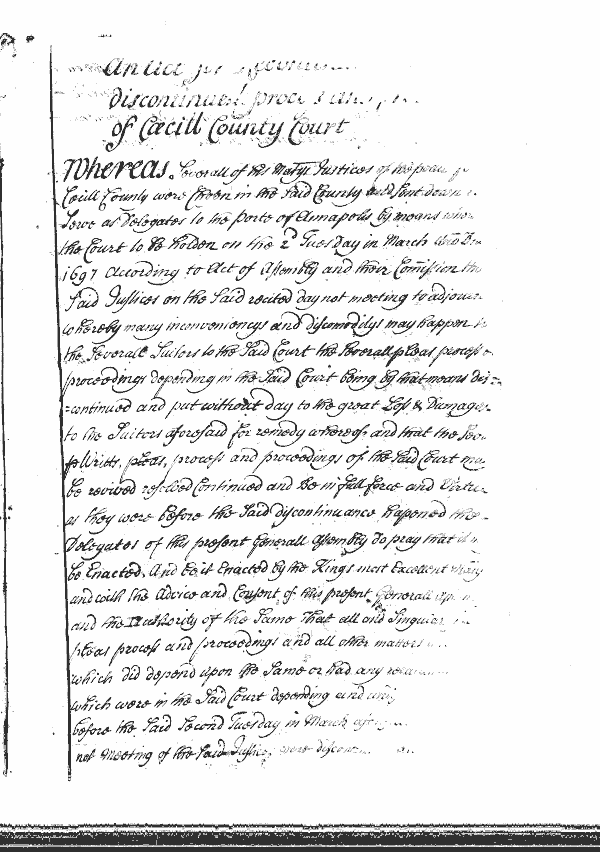 An Act for
discontinued process
of Cæcill County Court
Whereas Severall of his Matys Justices of the peace
Cæcill County were Chosen in the Said County and Sent down
Serve as Delegates to the porte of Annapolis by means
the Court to be holden on the 2d Tuesday in March
1697 According to Act of Assembly and their Comission the
Said Justices on the Said recited day not meeting to adjourn
whereby many inconveniencys and discomoditys may happen
the Severall Suitors to the Said Court the Severall pleas process
proceedings depending in the Said Court being by that means dis-
=continued and put without day to the great Loss & Damage
to the Suitors aforesaid for remedy whereof and that the
Writts, pleas, process and proceedings of the Said Court may
be revived resolved Continued and be in full force and Virtue
as they were before the Said discontinuance hapened the
Delegates of this present Generall Assembly do pray that it
be Enacted. And be it Enacted by the Kings most Excellent
and with the Advice and Consent of this present Generall
and the Authority of the Same That all and Singular
pleas process and proceedings and all other matters
which did depend upon the Same or had any
which were in the Said Court depending and
before the Said Second Tuesday in March
not Meeting of the Said Justices were